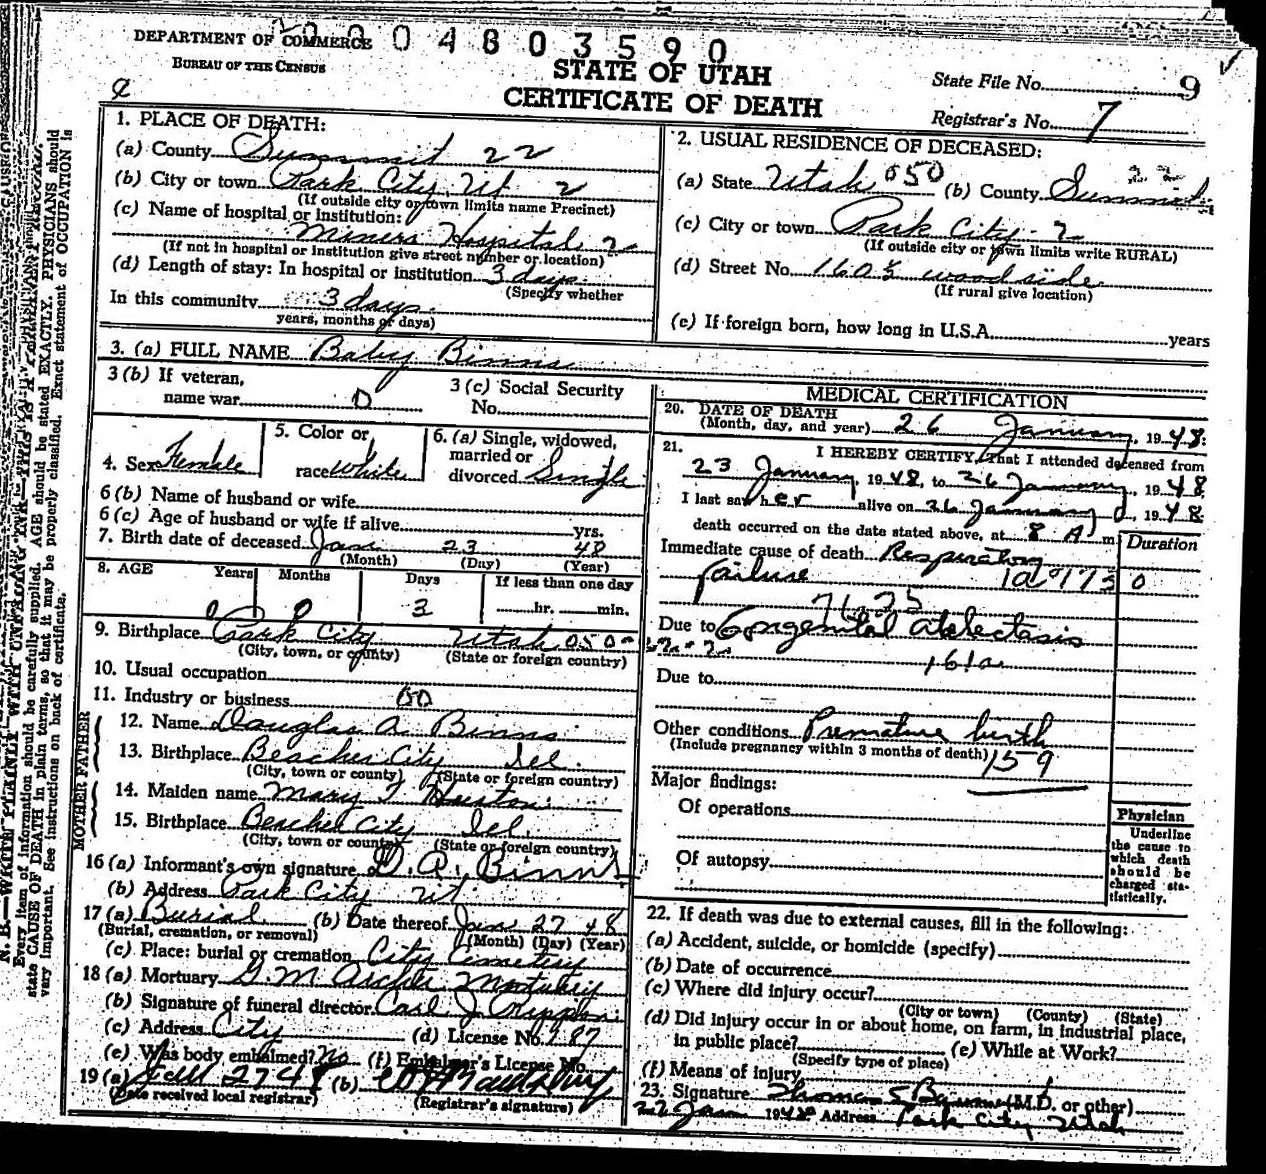 2004803590
DEPARTMENT OF COMMERCE
BUREAU OF THE CENSUS
STATE OF UTAH
CERTIFICATE OF DEATH
State File No. 9
Registrar's No. 7
1. PLACE OF DEATH:
(a) County Summit 22
(b) City or town Park City Ut. 2
(If outside city or town limits name Precinct)
(c) Name of hospital or institution:
Miners Hospital 2
(If not in hospital or institution give street number or location)
(d) Length of stay: In hospital or institution 3 days
(Specify whether
In this community 3 days.
years, months or days)
2. USUAL RESIDENCE OF DECEASED:
(a) State Utah 050 (b) County Summit 22
(c) City or town Park City - 2
(If outside city or town limits write RURAL)
(d) Street No. 160½ woodside
(If rural give location)
(e) If foreign born, how long in U.S.A. years
3. (a) FULL NAME Baby Binns
3 (b) If veteran,
name war 0
3 (c) Social Security
No.
4. Sex Female
5. Color or
race White
6. (a) Single, widowed,
married or
divorced Single
6 (b) Name of husband or wife
6 (c) Age of husband or wife if alive yrs.
7. Birth date of deceased Jan 23 48
(Month) (Day) (Year)
8. AGE Years Months Days If less than one day
0 0 3 hr. min.
9. Birthplace Park City Utah 050
(City, town, or county) (State or foreign country)
10. Usual occupation
11. Industry or business 00
FATHER
12. Name Douglas A. Binns
13. Birthplace City
(City, town or county) (State or foreign country)
MOTHER
14. Maiden name Mary
15. Birthplace City
(City, town or county) (State or foreign country)
16 (a) Informant's own signature D. A. Binns
(b) Address Park City Ut.
17 (a) Burial (b) Date thereof Jan 27 48
(Burial, cremation, or removal) (Month) (Day) (Year)
(c) Place: burial or cremation City Cemetery
18 (a) Mortuary G. M. Archer Mortuary
(b) Signature of funeral director Carl J.
(c) Address City (d) License No. 187
(e) Was body embalmed? No (f) Embalmer's License No.
19 (a) Jan 27 48 (b)
(Date received local registrar) (Registrar's signature)
MEDICAL CERTIFICATION
20. DATE OF DEATH
(Month, day, and year) 26 January, 1948
21. I HEREBY CERTIFY, That I attended deceased from
23 January, 1948, to 26 January, 1948
I last saw her alive on 26 January, 1948
death occurred on the date stated above, at 8 A m
Duration
Immediate cause of death Respiratory
failure
Due to Congenital atelectasis
161a
Due to
Other conditions Premature birth
(Include pregnancy within 3 months of death) 159
Major findings:
Of operations
Of autopsy
Physician
Underline
the cause to
which death
should be
charged sta-
tistically.
22. If death was due to external causes, fill in the following:
(a) Accident, suicide, or homicide (specify)
(b) Date of occurrence
(c) Where did injury occur?
(City or town) (County) (State)
(d) Did injury occur in or about home, on farm, in industrial place,
in public place? (e) While at Work?
(Specify type of place)
(f) Means of injury
23. Signature Thomas (M.D. or other)
Jan 1948 Address Park City Utah
N. B.—WRITE PLAINLY WITH UNFADING INK—THIS IS A PERMANENT RECORD.
Every item of information should be carefully supplied. AGE should be stated EXACTLY. PHYSICIANS should
state CAUSE OF DEATH in plain terms, so that it may be properly classified. Exact statement of OCCUPATION is
very important. See instructions on back of certificate.